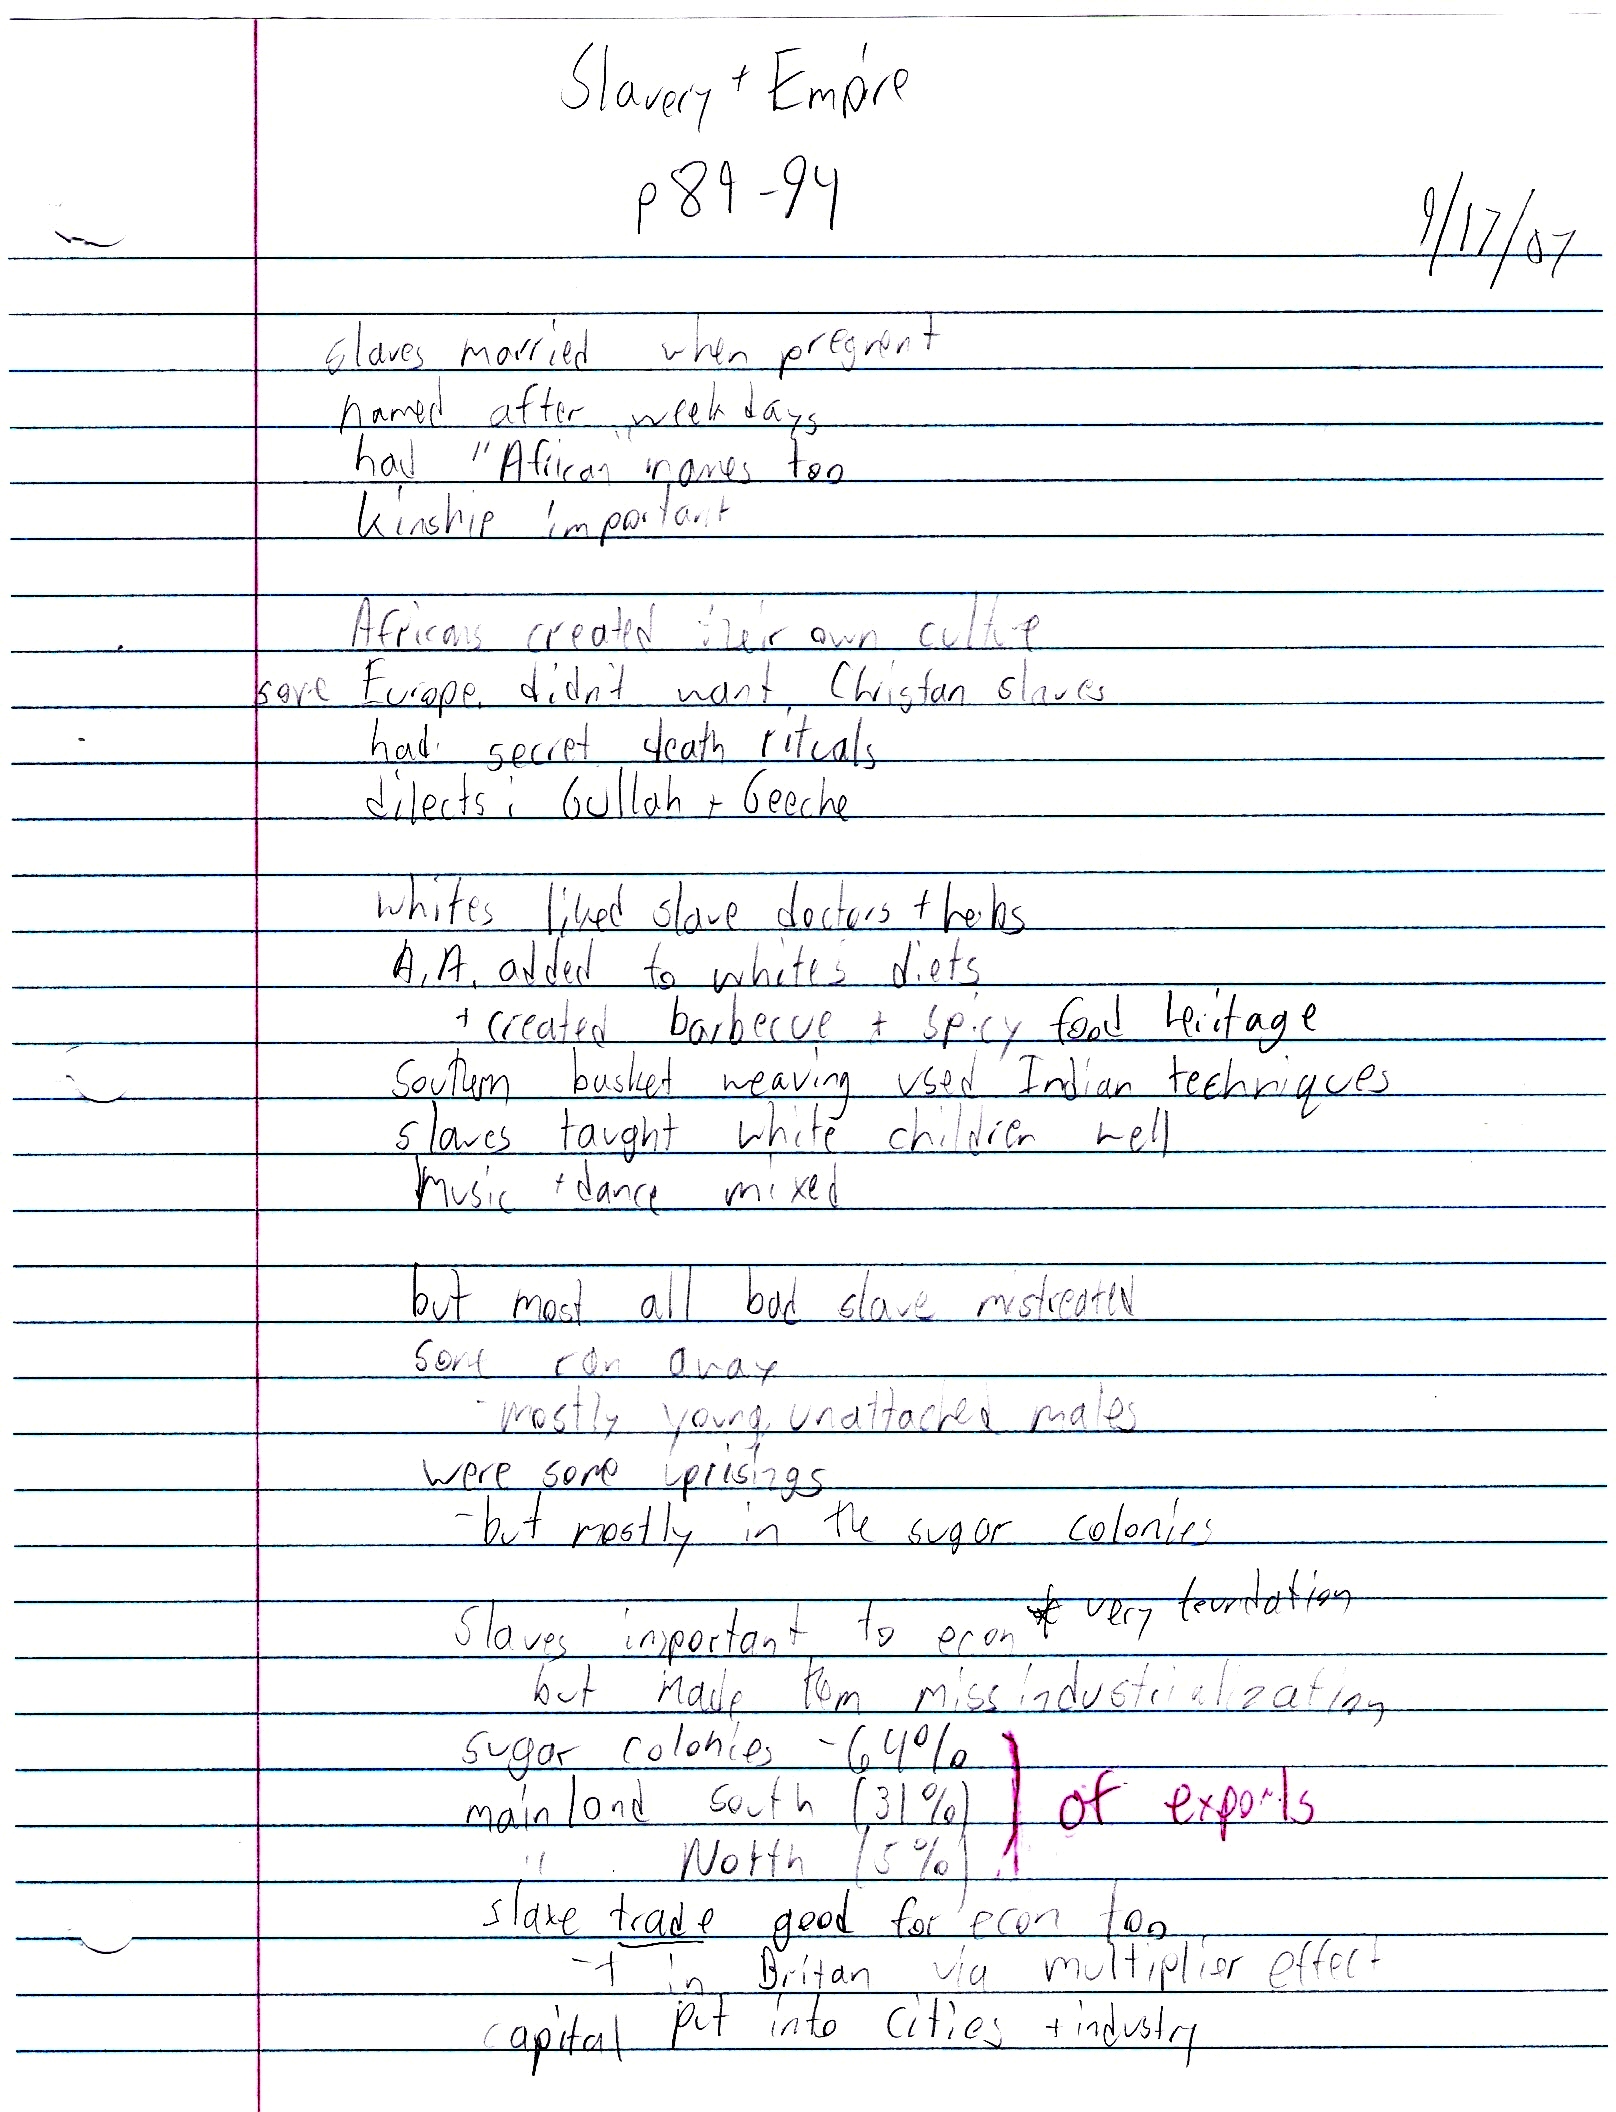 Slavery + Empire
p 89-94
9/17/07
slaves married when pregnent
named after weekdays
had "African" names too
kinship important
Africans created their own culture
some Europe. didn't want Christan slaves
had secret death rituals
dilects: Gullah + Geeche
whites liked slave doctors + herbs
A.A. added to white's diets
+ created barbecue + spicy food heritage
Southern basket weaving used Indian techniques
slaves taught white children well
Music + dance mixed
but most all bad slave mistreated
some ran away
- mostly young, unattached males
were some uprisings
- but mostly in the sugar colonies
Slaves important to econ * very foundation
but made them miss industrializating
sugar colonies - 64%
mainland south (31%) of exports
" North (5%)
slave trade good for econ too
- + in Britan via multiplier effect
capital put into cities + industry